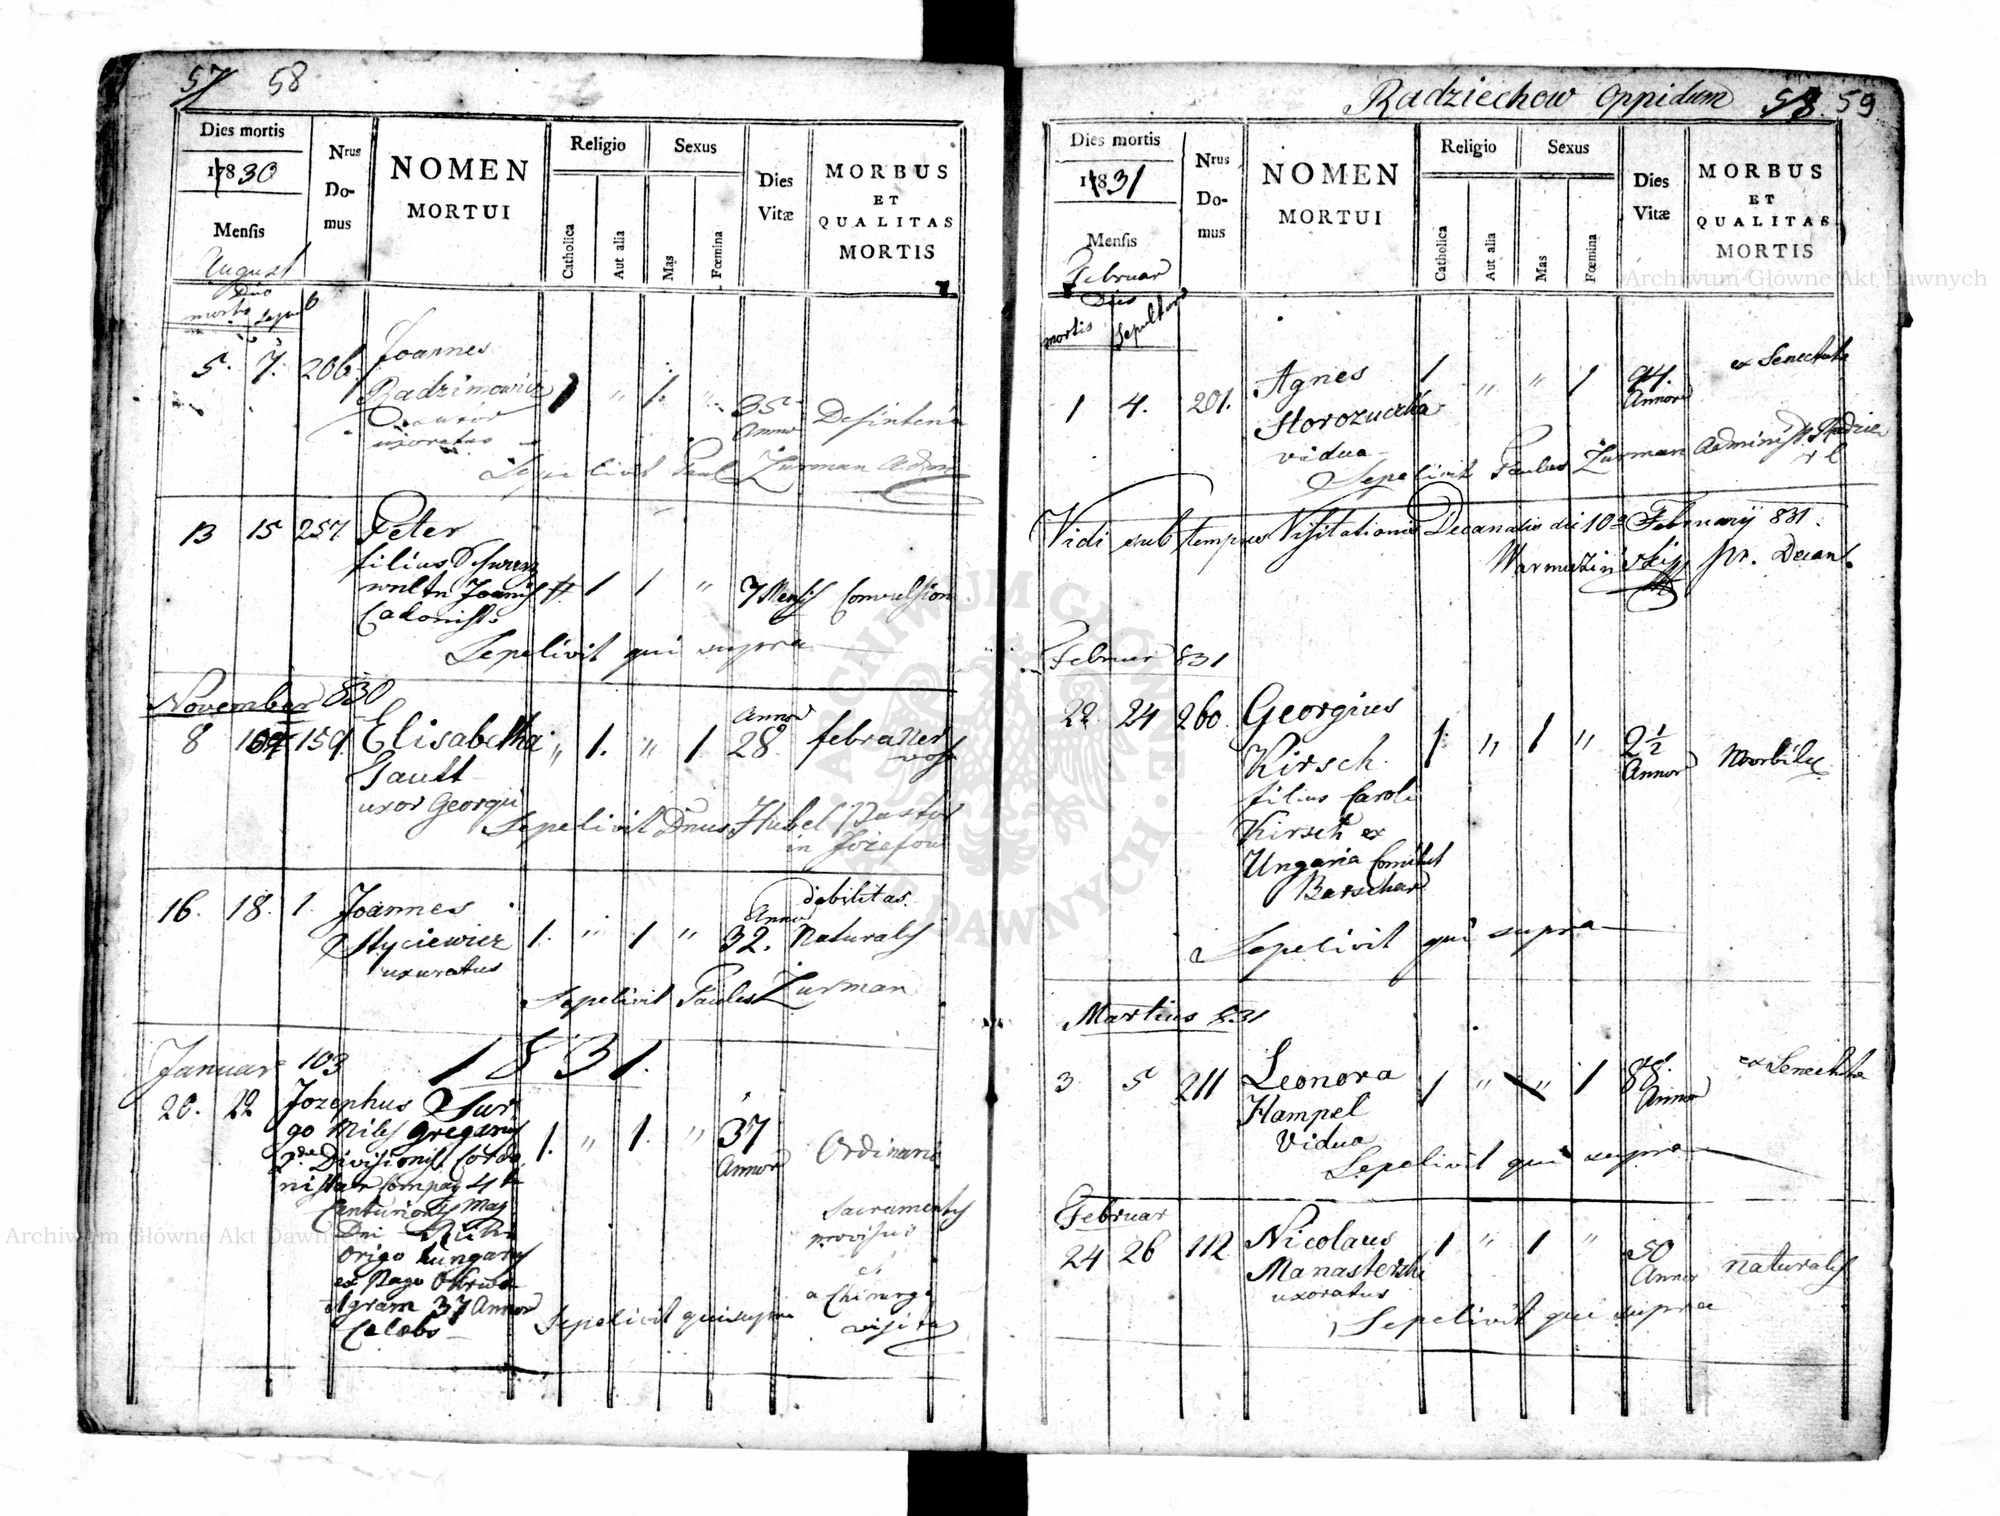 57 58
Dies mortis
1830
Mensis
August
Nrus
Do-
mus
NOMEN
MORTUI
Religio
Catholica
Aut alia
Sexus
Mas
Fœmina
Dies
Vitæ
MORBUS
ET
QUALITAS
MORTIS
5. 7. 206. Joannes
Radzimowicz 1 " 1. " 35
uxoratus Annor
Sepelivit Paul Zurman
13 15 257 Peter
filius
Joanis 1 1 " 7 Mensis Convulsion
Sepelivit qui supra
November 830
8 159. Elisabetha " 1. " 1. Annor 28 febra ner
vosa
Gault
uxor Georgii
Sepelivit Dnus Hubel Pastor
in Jozefow
16. 18. 1. Joannes debilitas
Styciewicz 1. " 1 " Annor 32. Naturalis
uxuratus
Sepelivit Paulus Zurman
Januar 103 1831.
20. 22 Jozephus
go Miles gregarius 1. " 1. " 37
2da Divisionis Annor Ordinaria
Compag 4ta
Centurionis Maj sacramentis
Dni provisus
Origo hungarus et
ex Pago a Chirurgo
Agram 37 Annor visita
Celebs
Sepelivit qui supra
Radziechow Oppidum 58. 59
Dies mortis
1831
Mensis
Februar
Dies
mortis Sepultura
Nrus
Do-
mus
NOMEN
MORTUI
Religio
Catholica
Aut alia
Sexus
Mas
Fœmina
Dies
Vitæ
MORBUS
ET
QUALITAS
MORTIS
1 4. 201. Agnes 1 " " 1 94. ex Senectute
Storozuczka Annor
vidua
Sepelivit Paulus Zurman Administ
Vidi sub tempus Visitationis Decanalis die 10a Februarij 831.
Decan.
Februar 831
22. 24 260. Georgius
Kirsch. 1 " 1 " 2½ Morbili
filius Caroli Annor
Kirsch ex
Ungaria Comitat
Barschar
Sepelivit qui supra
Martius 831
3. 5 211 Leonora 1 " " 1 88. ex Senectute
Hampel Annor
Vidua
Sepelivit qui supra
Februar
24 26 112 Nicolaus 1 " 1 " 50
Manasterski Annor naturalis
uxoratus
Sepelivit qui supra
Archiwum Główne Akt Dawnych
Archiwum Główne Akt Dawnych
ARCHIWUM GŁÓWNE AKT DAWNYCH